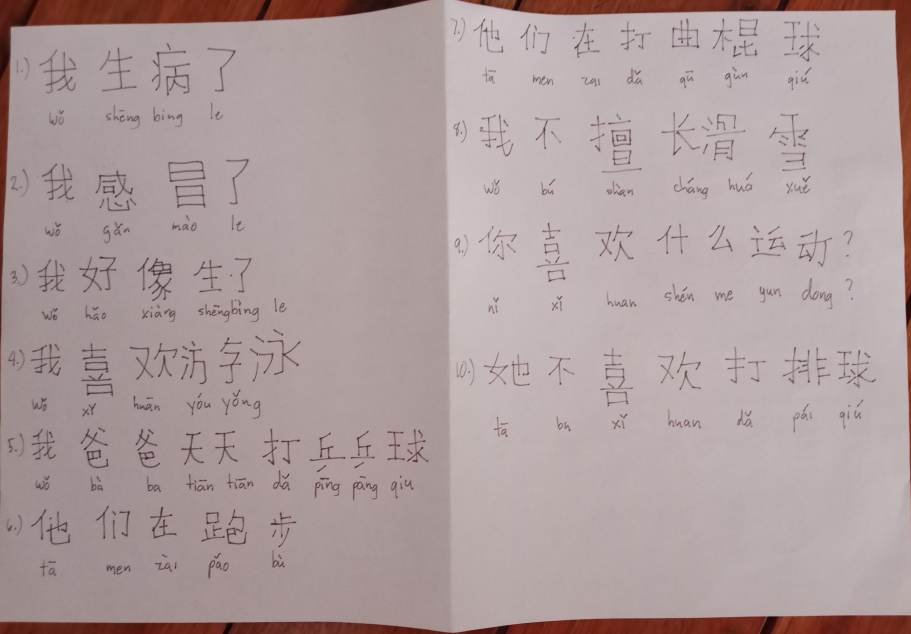 1.) 我生病了
wǒ shēng bing le
2.) 我感冒了
wǒ gǎn mào le
3.) 我好像生了
wǒ hǎo xiàng shēngbìng le
4.) 我喜欢游泳
wǒ xǐ huān yóu yǒng
5.) 我爸爸天天打乒乓球
wǒ bà ba tiān tiān dǎ pīng pāng qiu
6.) 他们在跑步
tā men zài pǎo bù
7.) 他们在打曲棍球
tā men zai dǎ qū gùn qiú
8.) 我不擅长滑雪
wǒ bú shàn cháng huá xuě
9.) 你喜欢什么运动?
nǐ xǐ huan shén me yun dong?
10.) 她不喜欢打排球
tā bu xǐ huan dǎ pái qiú